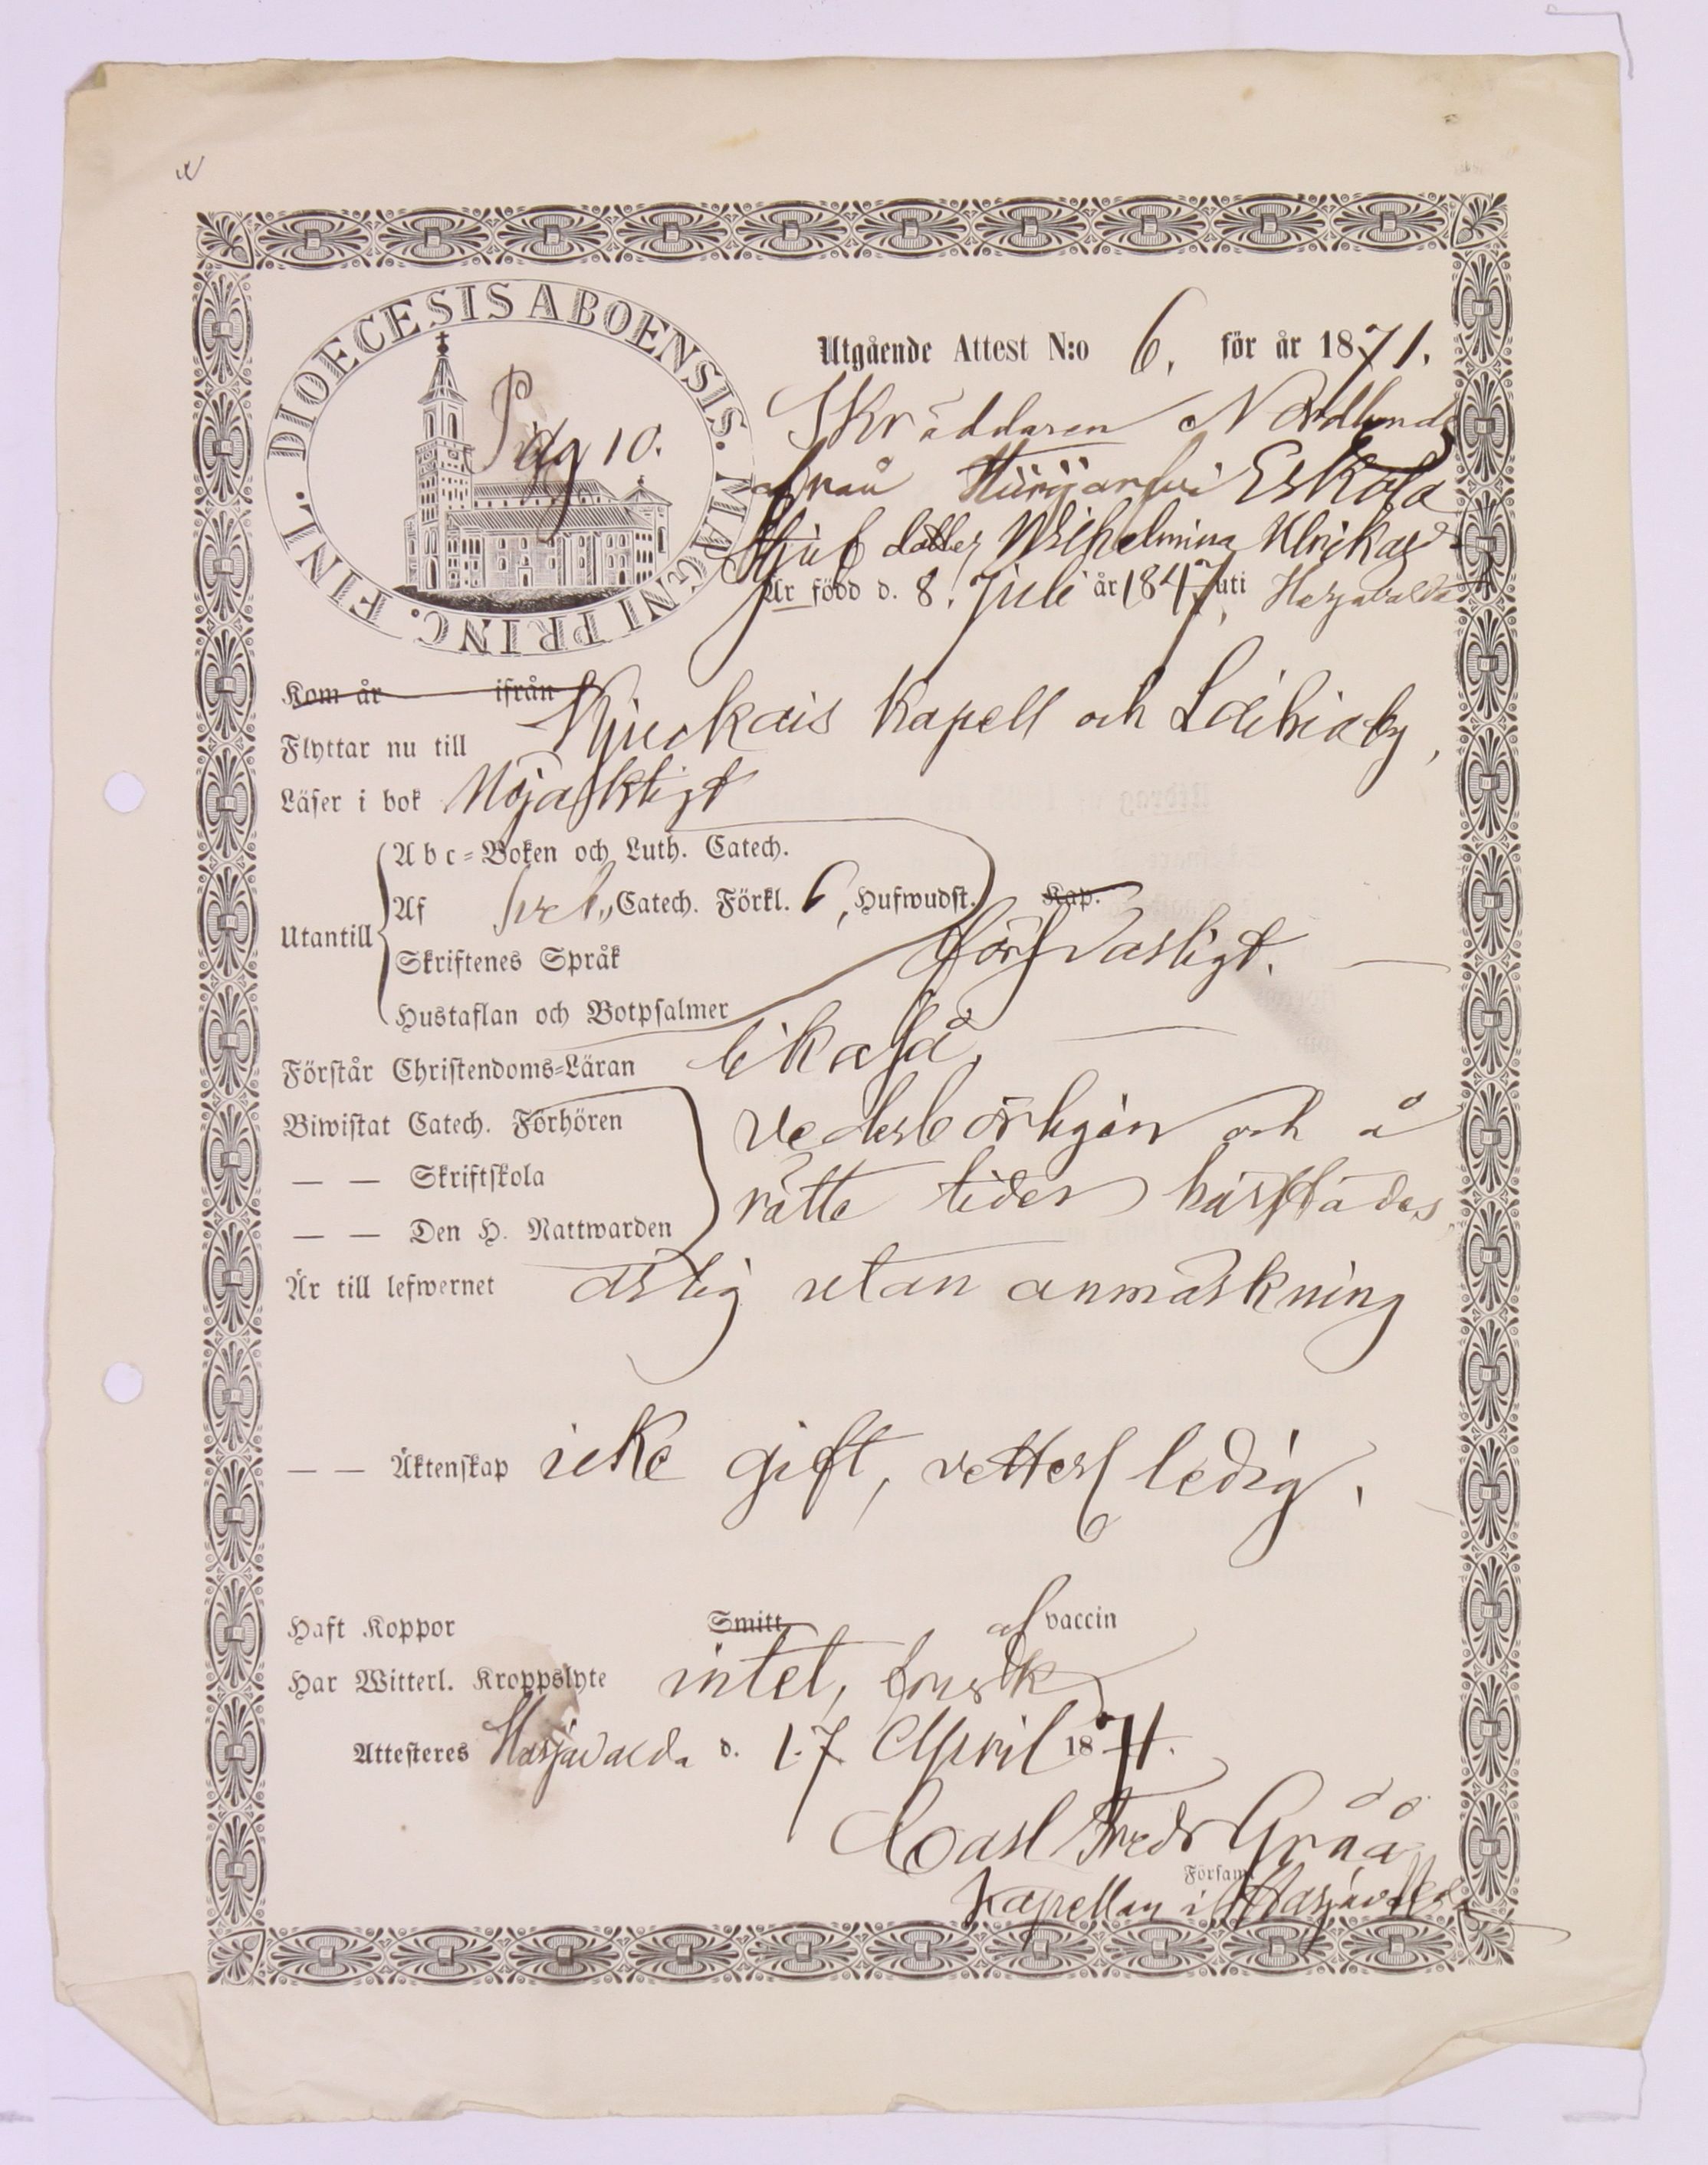 DIOECESIS ABOENSIS. MAGNI PRINC. FINL.
Pag 10.
Utgående Attest N:o 6. för år 1871.
Skräddaren Nordlunds
från Hiirijärfvi Eskola
Stjufdotter Wilhelmina Ulrika
Är född d. 8. Juli år 1847, uti Harjavalda
Kom år ifrån
Flyttar nu till Kjuckais Kapell och by,
Läser i bok Nöjaktigt
Abc-Boken och Luth. Catech.
Utantill Af Sveb. Catech. Förkl. 6, Hufwudst. Kap.
försvarligt.
Skriftenes Språk
Hustaflan och Botpsalmer
Förstår Christendoms-Läran likaså,
Biwistat Catech. Förhören vederbörligen och å
— — Skriftskola rätte tider härstädes,
— — Den H. Nattwarden
Är till lefwernet ärlig utan anmärkning
— — Äktenskap icke gift, ledig.
Haft Koppor Smitt af vaccin
Har Witterl. Kroppslyte intet, frisk
Attesteres Harjavalda d. 17 April 1871.
Carl Fredr Gråå
Församl.
Kapellan i Harjavalda